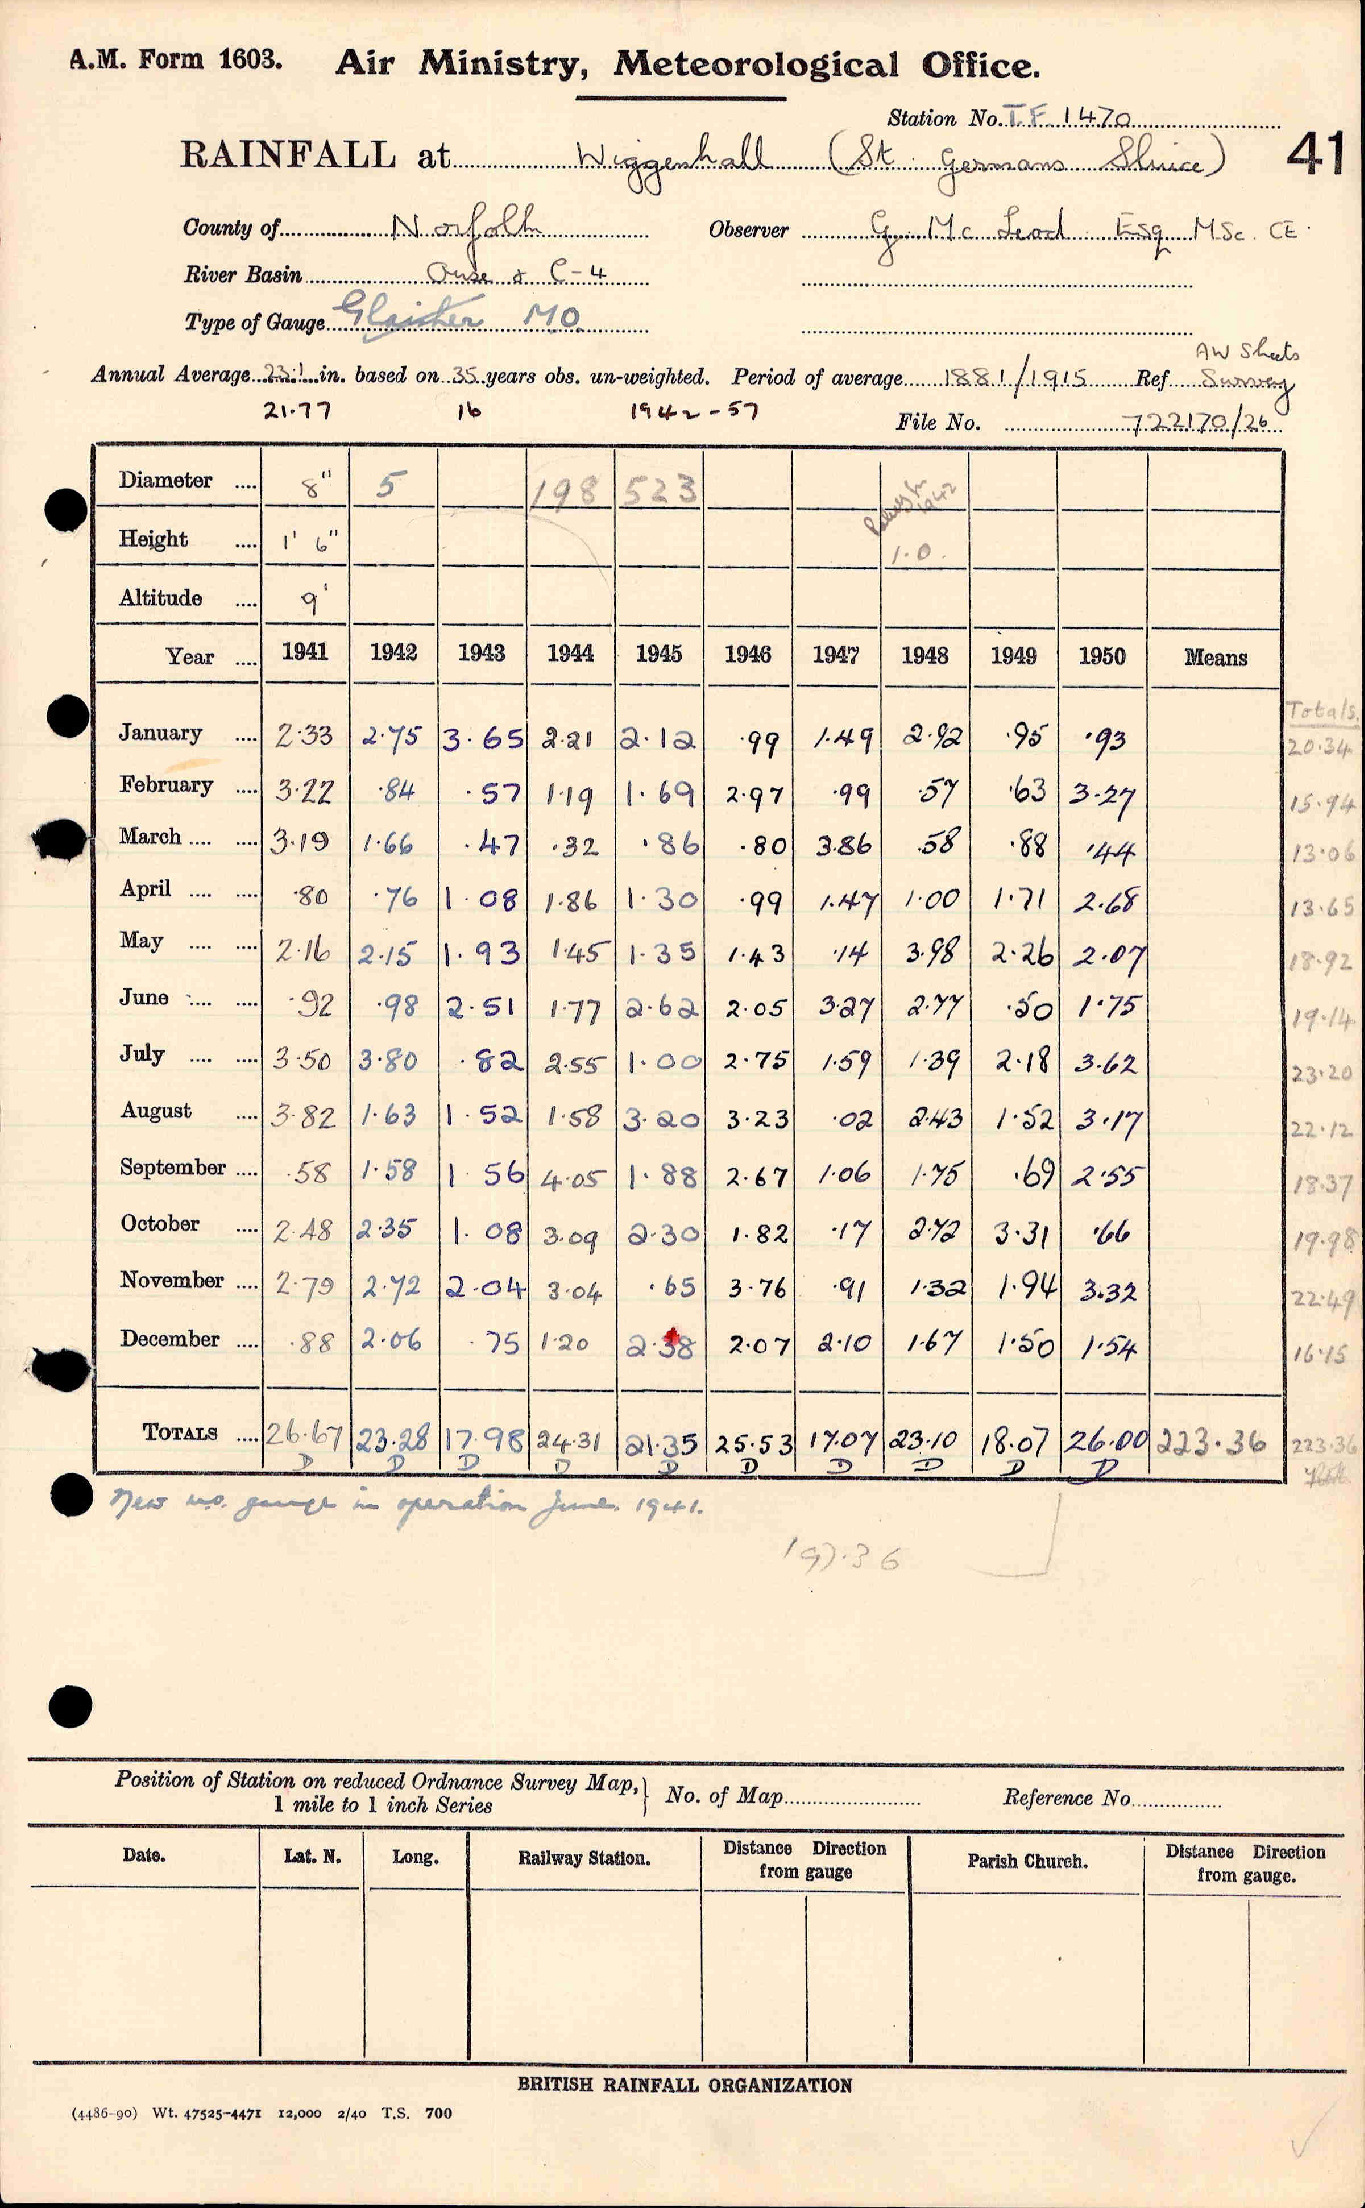 A.M. Form 1603. Air Ministry, Meteorological Office.
Station No. TF 1470
RAINFALL at Wiggenhall (St. Germans Sluice) 41
County of Norfolk Observer G. McLeod Esq MSc. CE.
River Basin Ouse & C-4
Type of Gauge Glaisher MO
AW Sheets
Annual Average 23.1 in. based on 35 years obs. un-weighted. Period of average 1881/1915 Ref Survey
21.77 16 1942-57
File No. 722170/26
Diameter .... 8" 5 198 523
1942
Height .... 1' 6" 1.0.
Altitude .... 9'
Year .... 1941 1942 1943 1944 1945 1946 1947 1948 1949 1950 Means
Totals.
January .... 2.33 2.75 3.65 2.21 2.12 .99 1.49 2.92 .95 .93 20.34
February .... 3.22 .84 .57 1.19 1.69 2.97 .99 .57 .63 3.27 15.94
March .... .... 3.19 1.66 .47 .32 .86 .80 3.86 .58 .88 .44 13.06
April .... .... .80 .76 1.08 1.86 1.30 .99 1.47 1.00 1.71 2.68 13.65
May .... .... 2.16 2.15 1.93 1.45 1.35 1.43 .14 3.98 2.26 2.07 18.92
June .... .... .92 .98 2.51 1.77 2.62 2.05 3.27 2.77 .50 1.75 19.14
July .... .... 3.50 3.80 .82 2.55 1.00 2.75 1.59 1.39 2.18 3.62 23.20
August .... 3.82 1.63 1.52 1.58 3.20 3.23 .02 2.43 1.52 3.17 22.12
September .... .58 1.58 1.56 4.05 1.88 2.67 1.06 1.75 .69 2.55 18.37
October .... 2.48 2.35 1.08 3.09 2.30 1.82 .17 2.72 3.31 .66 19.98
November .... 2.79 2.72 2.04 3.04 .65 3.76 .91 1.32 1.94 3.32 22.49
December .... .88 2.06 .75 1.20 2.38 2.07 2.10 1.67 1.50 1.54 16.15
TOTALS .... 26.67 23.28 17.98 24.31 21.35 25.53 17.07 23.10 18.07 26.00 223.36 223.36
D D D D D D D D D D
New M.O. gauge in operation June 1941.
197.36
Position of Station on reduced Ordnance Survey Map, 1 mile to 1 inch Series } No. of Map Reference No.
Date. Lat. N. Long. Railway Station. Distance Direction from gauge Parish Church. Distance Direction from gauge.
BRITISH RAINFALL ORGANIZATION
(4486-90) Wt. 47525-4471 12,000 2/40 T.S. 700